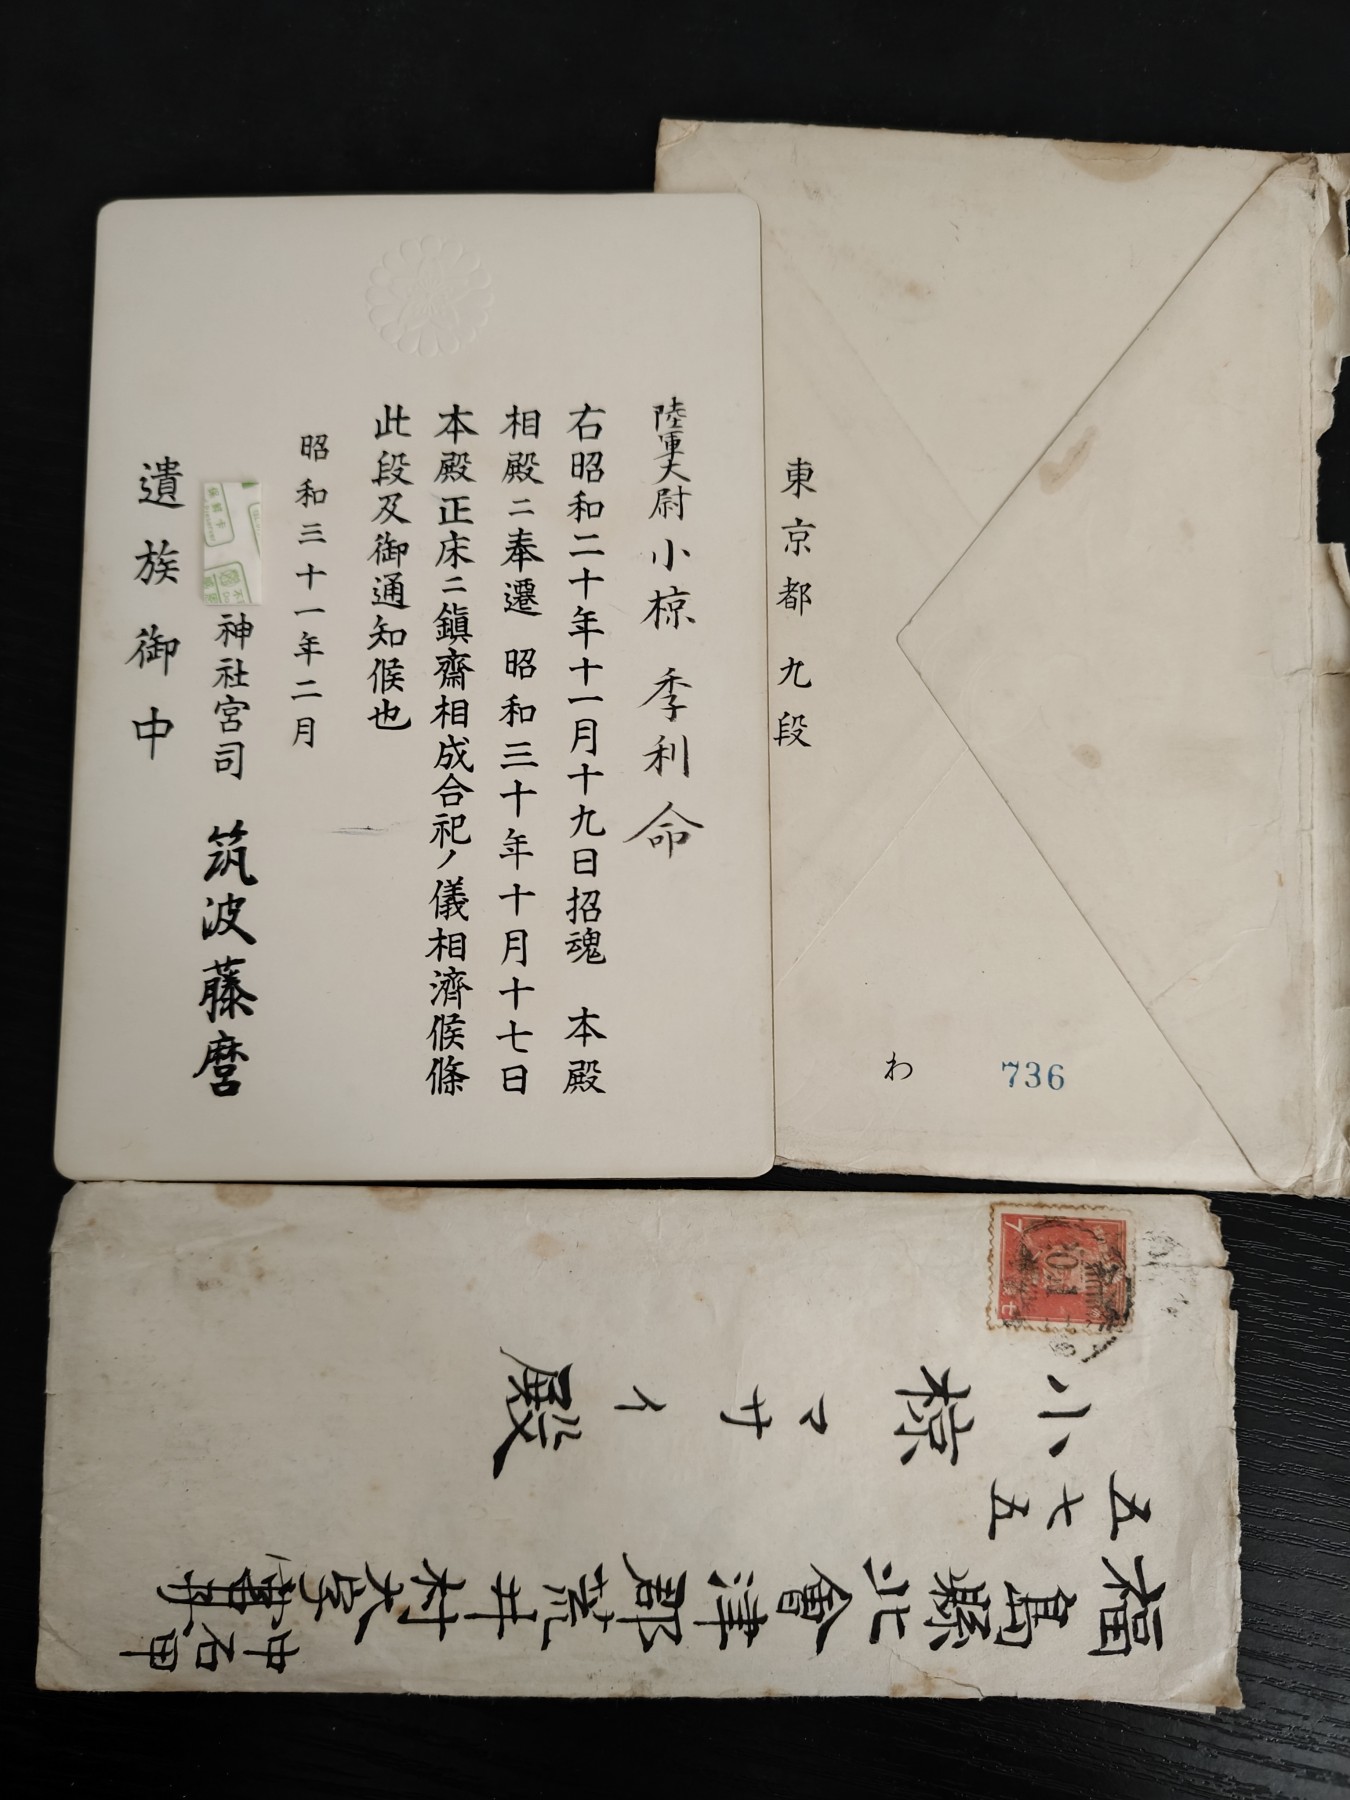 陸軍大尉 小椋 季利命
右昭和二十年十一月十九日招魂 本殿
相殿ニ奉遷 昭和三十年十月十七日
本殿正床ニ鎮齋相成合祀ノ儀相濟候條
此段及御通知候也
昭和三十一年二月
神社宮司 筑波藤麿
遺族御中
東京都九段
わ 736
福島縣北會津郡荒井村大字
五七五
小椋マサイ殿